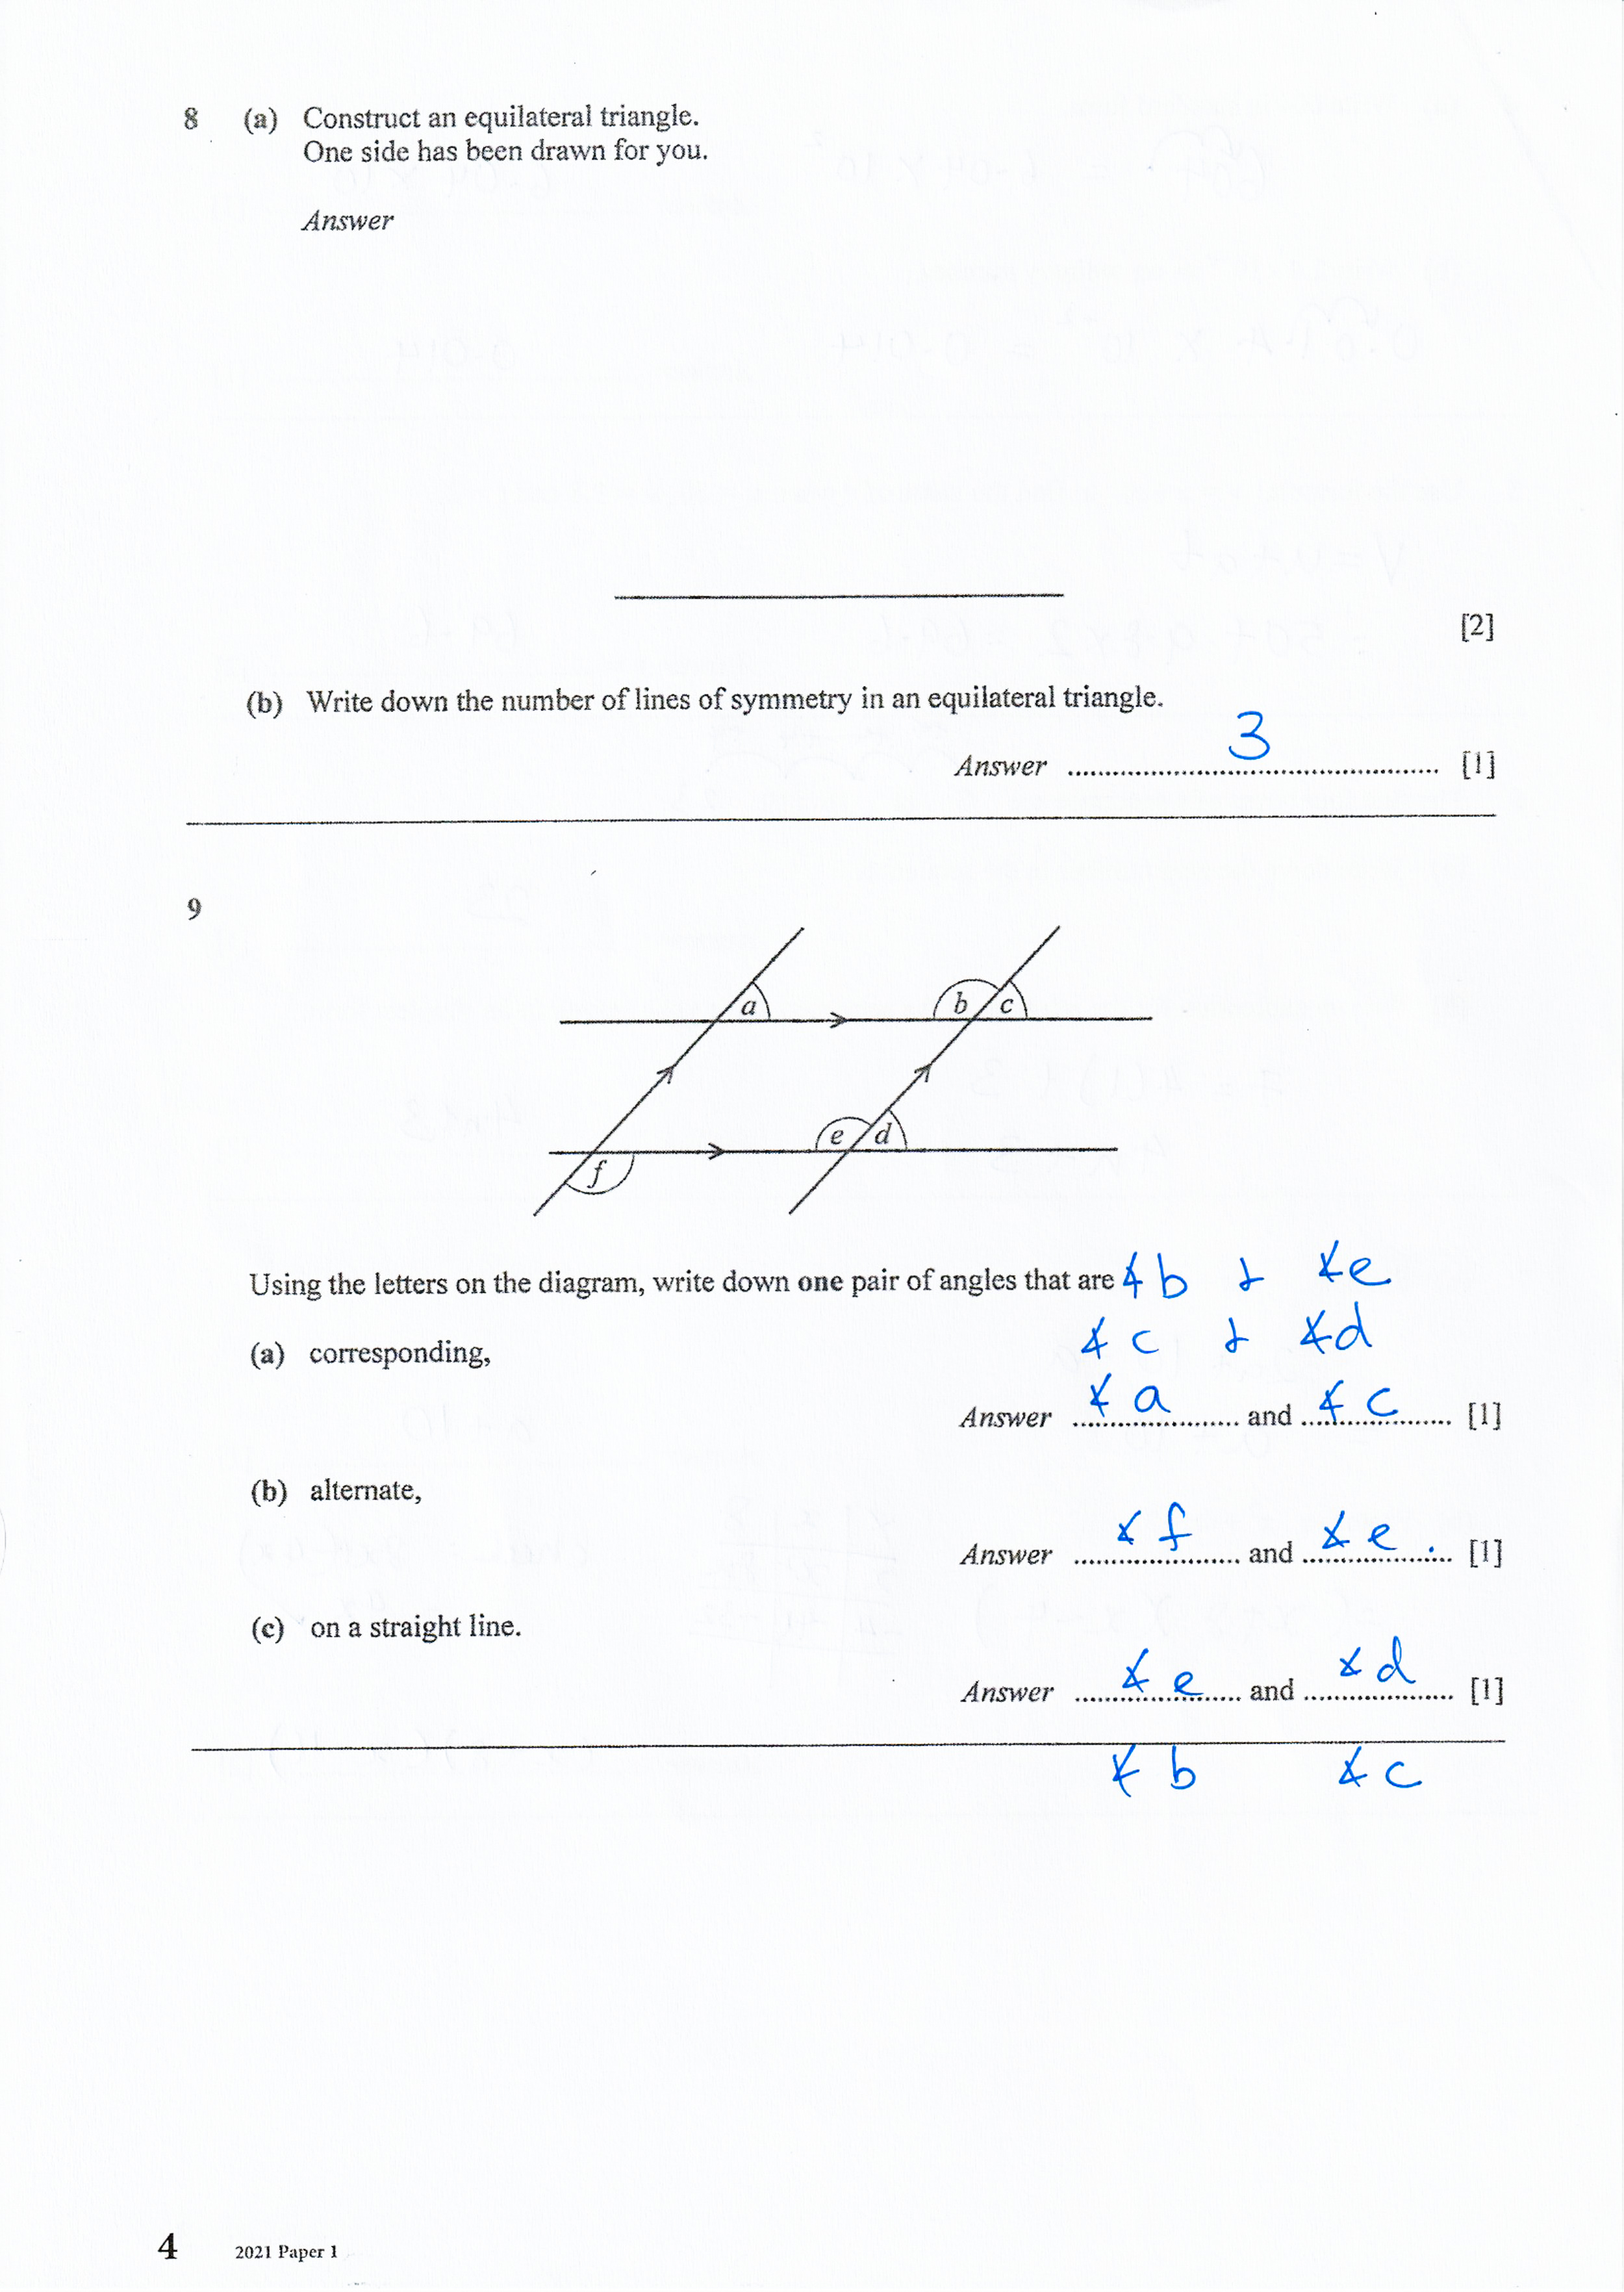 8 (a) Construct an equilateral triangle.
One side has been drawn for you.
Answer
[2]
(b) Write down the number of lines of symmetry in an equilateral triangle.
3
Answer ........................................ [1]
9
a
b c
e d
f
Using the letters on the diagram, write down one pair of angles that are ∡b & ∡e
∡c & ∡d
(a) corresponding,
Answer ∡a and ∡c [1]
(b) alternate,
Answer ∡f and ∡e. [1]
(c) on a straight line.
Answer ∡e and ∡d [1]
∡b ∡c
4 2021 Paper 1